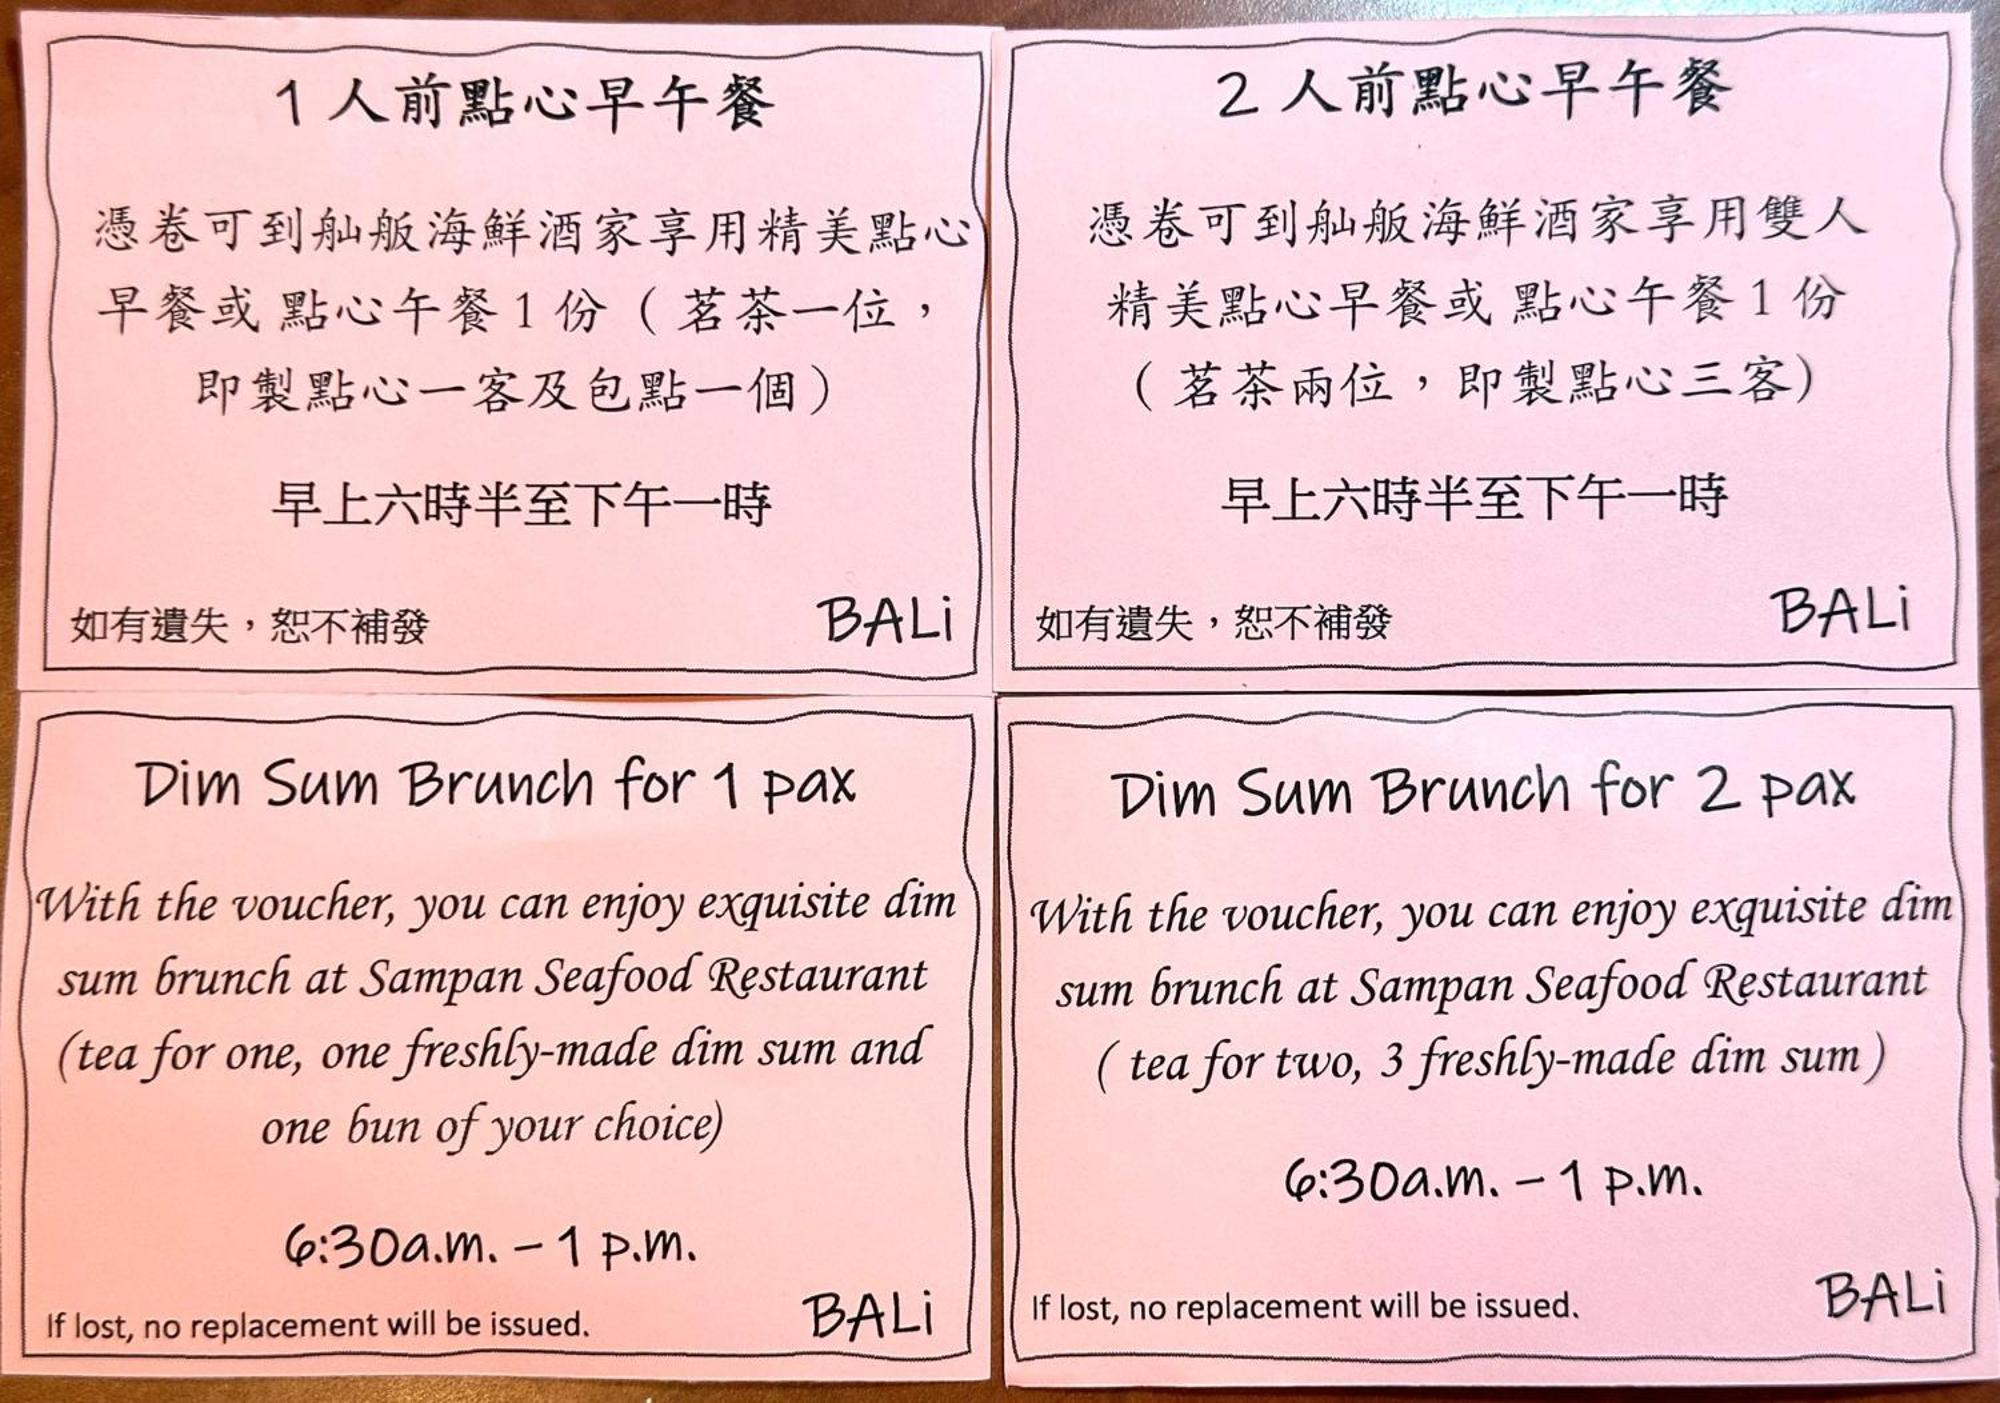 1 人前點心早午餐
憑卷可到舢舨海鮮酒家享用精美點心
早餐或 點心午餐 1 份 ( 茗茶一位，
即製點心一客及包點一個 )
早上六時半至下午一時
如有遺失，恕不補發
BALi
2 人前點心早午餐
憑卷可到舢舨海鮮酒家享用雙人
精美點心早餐或 點心午餐 1 份
( 茗茶兩位，即製點心三客)
早上六時半至下午一時
如有遺失，恕不補發
BALi
Dim Sum Brunch for 1 pax
With the voucher, you can enjoy exquisite dim
sum brunch at Sampan Seafood Restaurant
(tea for one, one freshly-made dim sum and
one bun of your choice)
6:30a.m. – 1 p.m.
BALi
If lost, no replacement will be issued.
Dim Sum Brunch for 2 pax
With the voucher, you can enjoy exquisite dim
sum brunch at Sampan Seafood Restaurant
( tea for two, 3 freshly-made dim sum )
6:30a.m. – 1 p.m.
BALi
If lost, no replacement will be issued.